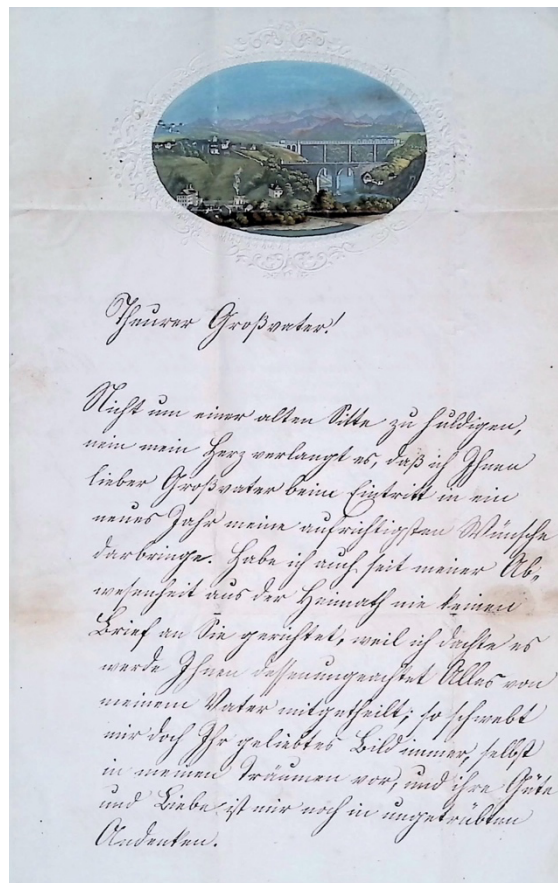 Theurer Großvater!
Nicht um einer alten Sitte zu huldigen,
nein mein Herz verlangt es, daß ich Ihnen
lieber Großvater beim Eintritt in ein
neues Jahr meine aufrichtigsten Wünsche
darbringe. Habe ich auch seit meiner Ab-
wesenheit aus der Heimath nie keinen
Brief an Sie gerichtet, weil ich dachte es
werde Ihnen dessenungeachtet Alles von
meinem Vater mitgetheilt; so schwebt
mir doch Ihr geliebtes Bild immer, selbst
in meinen Träumen vor, und ihre Güte
und Liebe ist mir noch in ungetrübten
Andenken.